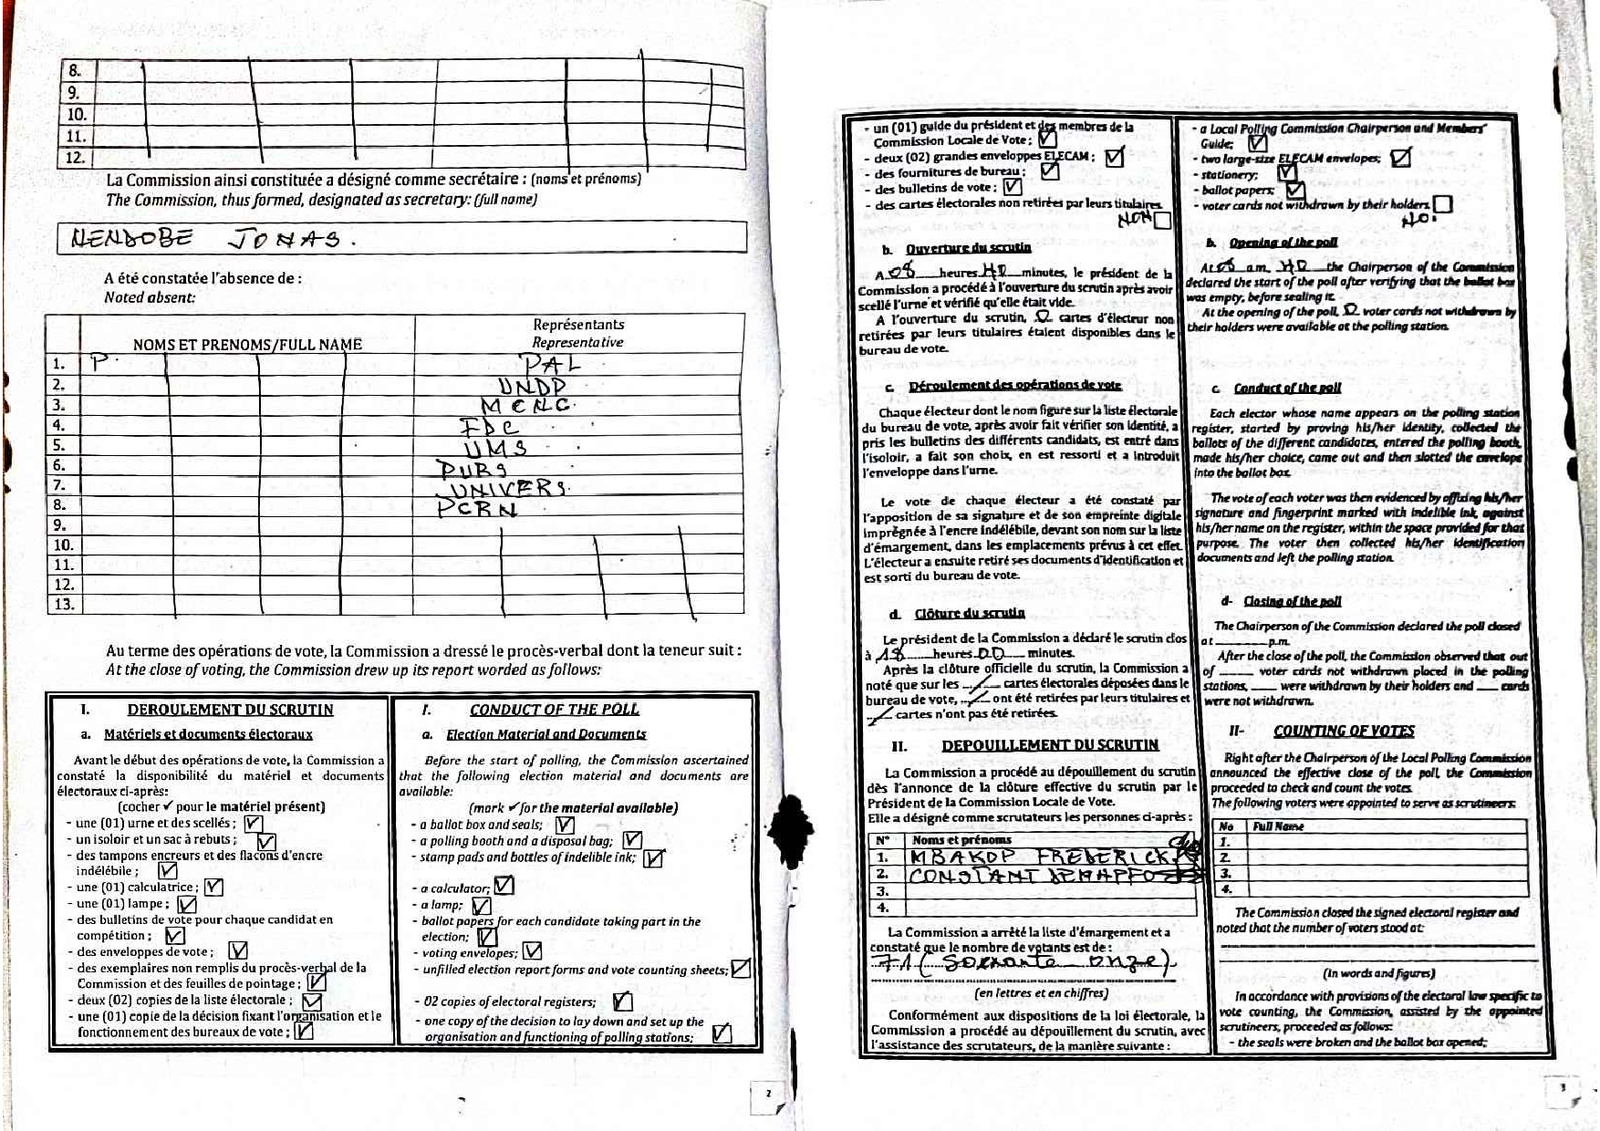 8.
9.
10.
11.
12.
La Commission ainsi constituée a désigné comme secrétaire : (noms et prénoms)
The Commission, thus formed, designated as secretary: (full name)
NENDOBE JONAS.
A été constatée l'absence de :
Noted absent:
NOMS ET PRENOMS/FULL NAME
Représentants
Representative
1. P. PAL
2. UNDP
3. MCNC.
4. FDC
5. UMS
6. PURS
7. UNIVERS
8. PCRN
9.
10.
11.
12.
13.
Au terme des opérations de vote, la Commission a dressé le procès-verbal dont la teneur suit :
At the close of voting, the Commission drew up its report worded as follows:
I. DEROULEMENT DU SCRUTIN
a. Matériels et documents électoraux
Avant le début des opérations de vote, la Commission a
constaté la disponibilité du matériel et documents
électoraux ci-après:
(cocher ✓ pour le matériel présent)
- une (01) urne et des scellés ;
- un isoloir et un sac à rebuts ;
- des tampons encreurs et des flacons d'encre
indélébile ;
- une (01) calculatrice ;
- une (01) lampe ;
- des bulletins de vote pour chaque candidat en
compétition ;
- des enveloppes de vote ;
- des exemplaires non remplis du procès-verbal de la
Commission et des feuilles de pointage ;
- deux (02) copies de la liste électorale ;
- une (01) copie de la décision fixant l'organisation et le
fonctionnement des bureaux de vote ;
I. CONDUCT OF THE POLL
a. Election Material and Documents
Before the start of polling, the Commission ascertained
that the following election material and documents are
available:
(mark ✓ for the material available)
- a ballot box and seals;
- a polling booth and a disposal bag;
- stamp pads and bottles of indelible ink;
- a calculator;
- a lamp;
- ballot papers for each candidate taking part in the
election;
- voting envelopes;
- unfilled election report forms and vote counting sheets;
- 02 copies of electoral registers;
- one copy of the decision to lay down and set up the
organisation and functioning of polling stations;
2
- un (01) guide du président et des membres de la
Commission Locale de Vote ;
- deux (02) grandes enveloppes ELECAM ;
- des fournitures de bureau ;
- des bulletins de vote ;
- des cartes électorales non retirées par leurs titulaires.
NON
b. Ouverture du scrutin
A 08 heures minutes, le président de la
Commission a procédé à l'ouverture du scrutin après avoir
scellé l'urne et vérifié qu'elle était vide.
A l'ouverture du scrutin, cartes d'électeur non
retirées par leurs titulaires étaient disponibles dans le
bureau de vote.
c. Déroulement des opérations de vote
Chaque électeur dont le nom figure sur la liste électorale
du bureau de vote, après avoir fait vérifier son identité, a
pris les bulletins des différents candidats, est entré dans
l'isoloir, a fait son choix, en est ressorti et a introduit
l'enveloppe dans l'urne.
Le vote de chaque électeur a été constaté par
l'apposition de sa signature et de son empreinte digitale
imprégnée à l'encre indélébile, devant son nom sur la liste
d'émargement, dans les emplacements prévus à cet effet.
L'électeur a ensuite retiré ses documents d'identification et
est sorti du bureau de vote.
d. Clôture du scrutin
Le président de la Commission a déclaré le scrutin clos
à 18 heures 00 minutes.
Après la clôture officielle du scrutin, la Commission a
noté que sur les / cartes électorales déposées dans le
bureau de vote, / ont été retirées par leurs titulaires et
/ cartes n'ont pas été retirées.
II. DEPOUILLEMENT DU SCRUTIN
La Commission a procédé au dépouillement du scrutin
dès l'annonce de la clôture effective du scrutin par le
Président de la Commission Locale de Vote.
Elle a désigné comme scrutateurs les personnes ci-après :
N° Noms et prénoms
1. MBAKOP FREDERICK
2. CONSTANT
3.
4.
La Commission a arrêté la liste d'émargement et a
constaté que le nombre de votants est de :
71 (Soixante onze)
(en lettres et en chiffres)
Conformément aux dispositions de la loi électorale, la
Commission a procédé au dépouillement du scrutin, avec
l'assistance des scrutateurs, de la manière suivante :
- a Local Polling Commission Chairperson and Members'
Guide;
- two large-size ELECAM envelopes;
- stationery;
- ballot papers;
- voter cards not withdrawn by their holders
NO.
b. Opening of the poll
At 08 a.m. the Chairperson of the Commission
declared the start of the poll after verifying that the ballot box
was empty, before sealing it.
At the opening of the poll, voter cards not withdrawn by
their holders were available at the polling station.
c. Conduct of the poll
Each elector whose name appears on the polling station
register, started by proving his/her identity, collected the
ballots of the different candidates, entered the polling booth,
made his/her choice, came out and then slotted the envelope
into the ballot box.
The vote of each voter was then evidenced by affixing his/her
signature and fingerprint marked with indelible ink, against
his/her name on the register, within the space provided for that
purpose. The voter then collected his/her identification
documents and left the polling station.
d- Closing of the poll
The Chairperson of the Commission declared the poll closed
at ______ p.m.
After the close of the poll, the Commission observed that out
of ____ voter cards not withdrawn placed in the polling
stations, ___ were withdrawn by their holders and ___ cards
were not withdrawn.
II- COUNTING OF VOTES
Right after the Chairperson of the Local Polling Commission
announced the effective close of the poll, the Commission
proceeded to check and count the votes.
The following voters were appointed to serve as scrutineers:
No Full Name
1.
2.
3.
4.
The Commission closed the signed electoral register and
noted that the number of voters stood at:
(In words and figures)
In accordance with provisions of the electoral law specific to
vote counting, the Commission, assisted by the appointed
scrutineers, proceeded as follows:
- the seals were broken and the ballot box opened;
3